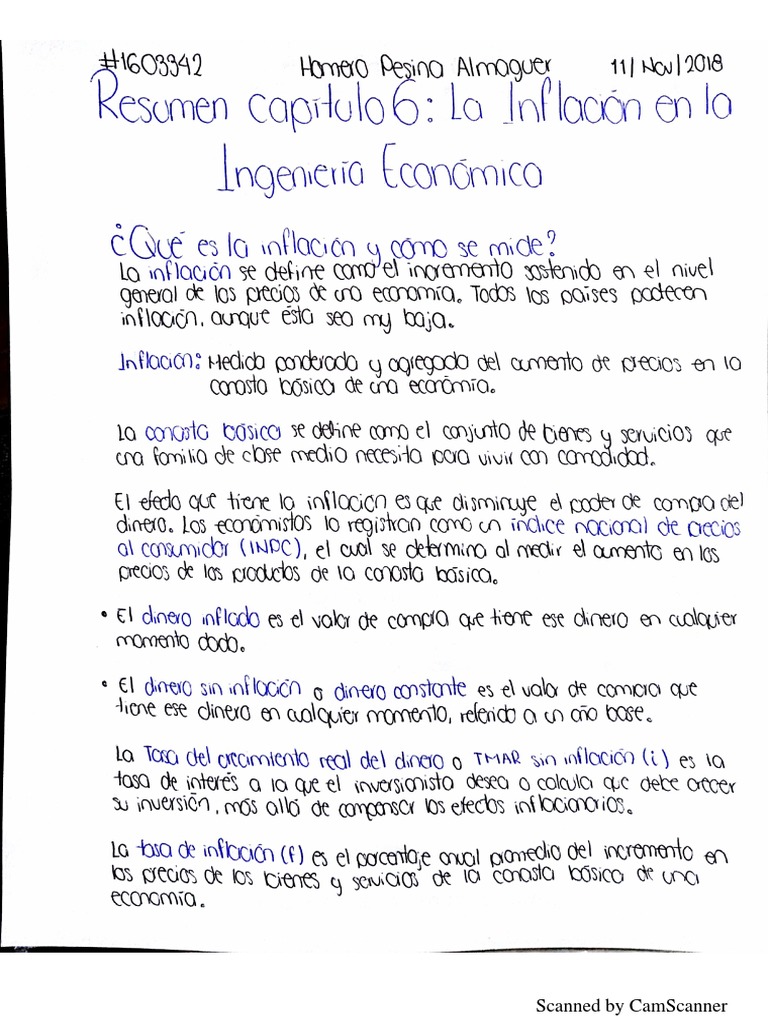 #1603342 Homero Pesina Almaguer 11/Nov/2018
Resumen capítulo 6: La Inflación en la
Ingeniería Económica
¿Qué es la inflación y cómo se mide?
La inflación se define como el incremento sostenido en el nivel
general de los precios de una economía. Todos los países padecen
inflación, aunque ésta sea my baja.
Inflación: Medida ponderada y agregada del aumento de precios en la
canasta básica de una economía.
La canasta básica se define como el conjunto de bienes y servicios que
una familia de clase media necesita para vivir con comodidad.
El efecto que tiene la inflación es que disminuye el poder de compra del
dinero. Los economistas lo registran como un índice nacional de precios
al consumidor (INPC), el cual se determina al medir el aumento en los
precios de los productos de la canasta básica.
• El dinero inflado es el valor de compra que tiene ese dinero en cualquier
momento dado.
• El dinero sin inflación o dinero constante es el valor de compra que
tiene ese dinero en cualquier momento, referido a un año base.
La Tasa del crecimiento real del dinero o TMAR sin inflación (i) es la
tasa de interés a la que el inversionista desea o calcula que debe crecer
su inversión, más allá de compensar los efectos inflacionarios.
La tasa de inflación (f) es el porcentaje anual promedio del incremento en
los precios de los bienes y servicios de la canasta básica de una
economía.
Scanned by CamScanner